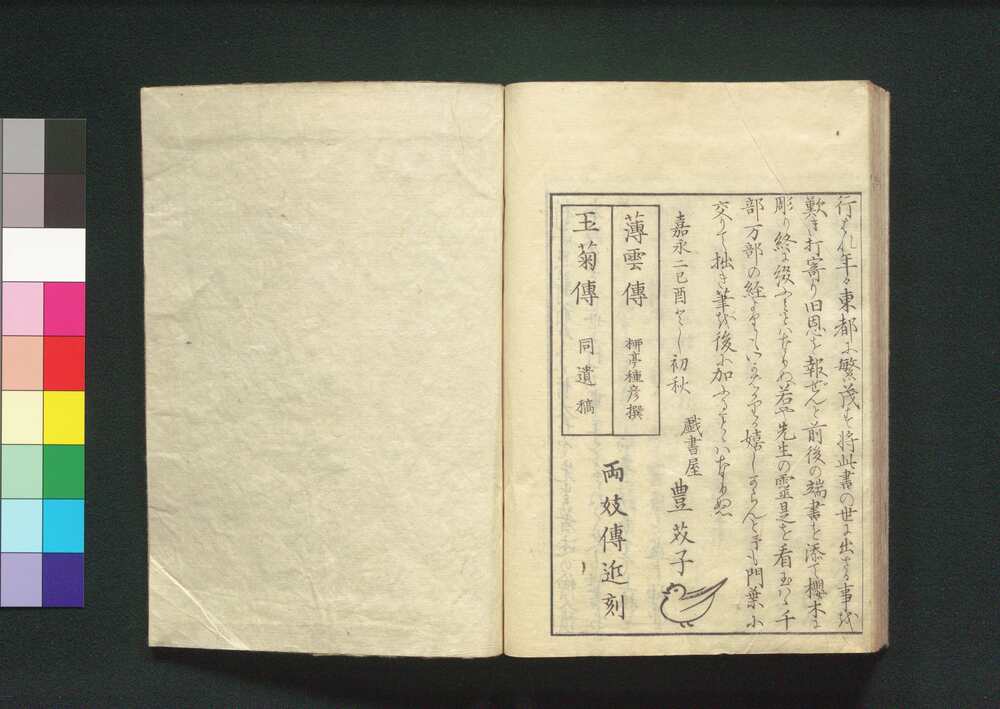 行はれ年々東都に繁茂す将此書の世に出ざる事を
歎き打寄り旧恩を報ぜんと前後の端書を添て櫻木に
彫り終に綴ふことゝはなりぬ若や先生の霊是を看玉はゞ千
部万部の経よりもいかばかり嬉しからんと予も門葉に
交りて拙き筆を後に加ふることゝはなりぬ
嘉永二己酉とし初秋
戯書屋
豊芥子
薄雲傳 柳亭種彦撰
玉菊傳 同遺稿
両妓傳近刻